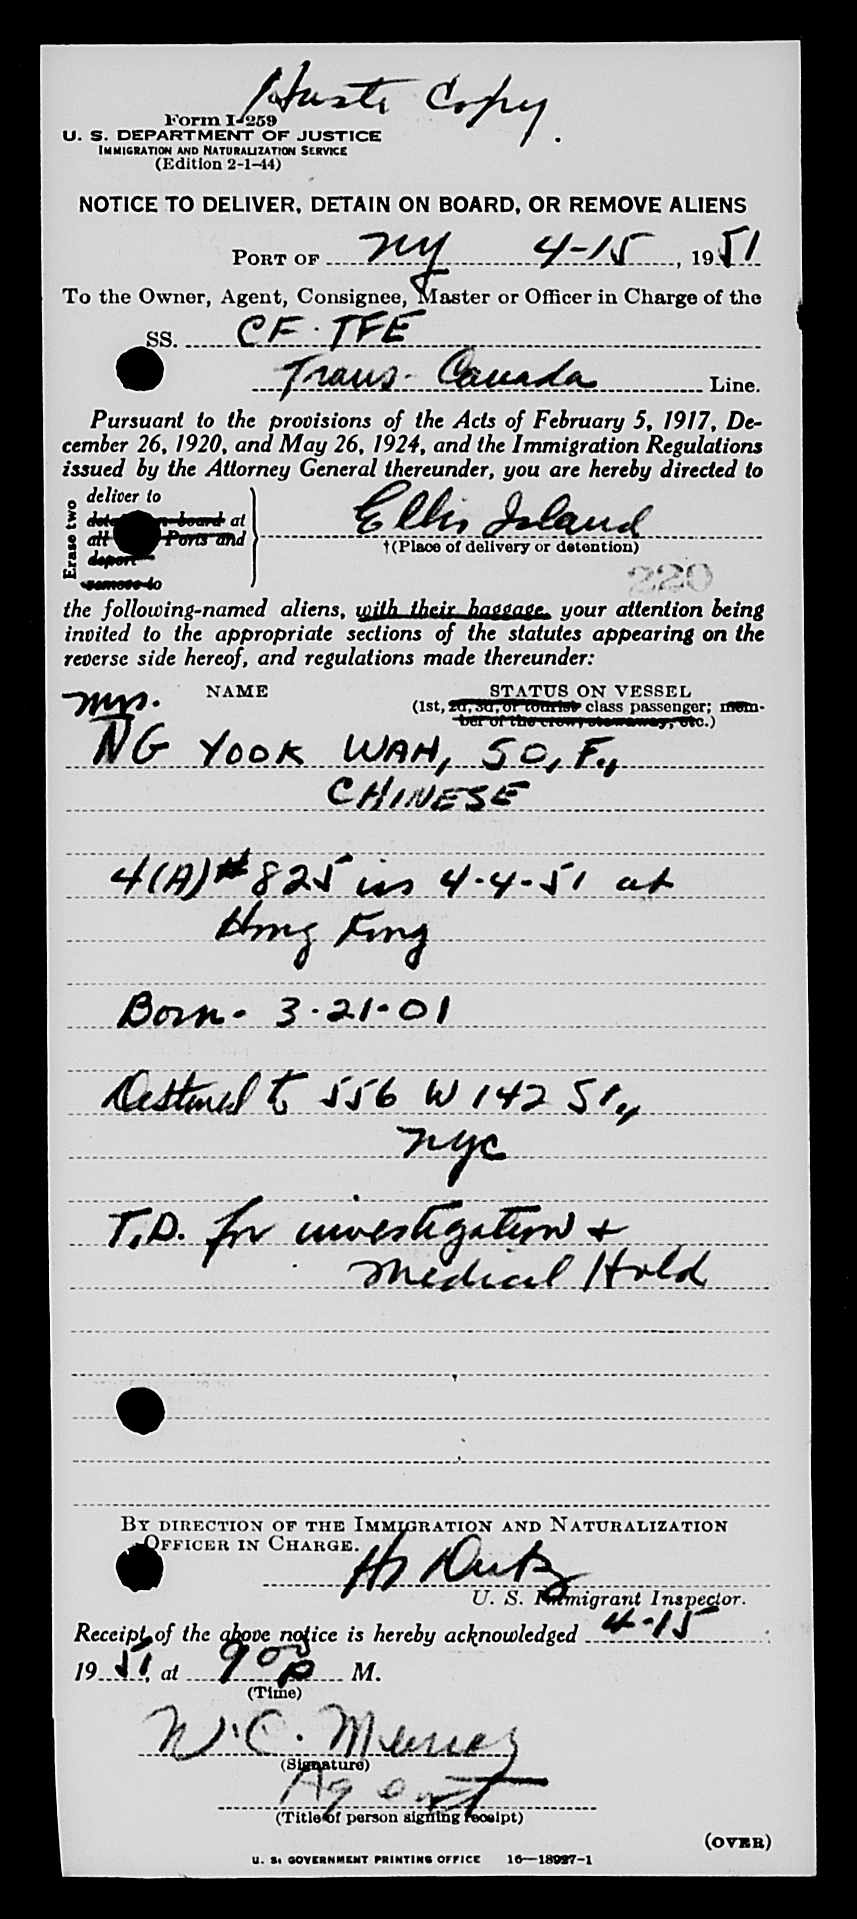 Copy.
Form I-259
U. S. DEPARTMENT OF JUSTICE
IMMIGRATION AND NATURALIZATION SERVICE
(Edition 2-1-44)
NOTICE TO DELIVER, DETAIN ON BOARD, OR REMOVE ALIENS
PORT OF NY 4-15, 1951
To the Owner, Agent, Consignee, Master or Officer in Charge of the
SS. CF-TFE
Trans-Canada Line.
Pursuant to the provisions of the Acts of February 5, 1917, De-
cember 26, 1920, and May 26, 1924, and the Immigration Regulations
issued by the Attorney General thereunder, you are hereby directed to
Erase two
deliver to
on board at
all Ports and
deport
remove to
Ellis Island
†(Place of delivery or detention)
220
the following-named aliens, with their baggage, your attention being
invited to the appropriate sections of the statutes appearing on the
reverse side hereof, and regulations made thereunder:
NAME STATUS ON VESSEL
(1st, 2d, 3d, or tourist class passenger; mem-
ber of the crew, stowaway, etc.)
Mrs.
NG YOOK WAH, 50, F.,
CHINESE
4(A) #825 iss 4-4-51 at
Hong Kong
Born- 3-21-01
Destined to 556 W 142 St,
NYC
T.D. for investigation +
Medical Hold
BY DIRECTION OF THE IMMIGRATION AND NATURALIZATION
OFFICER IN CHARGE.
U. S. Immigrant Inspector.
Receipt of the above notice is hereby acknowledged 4-15
1951, at 900 p M.
(Time)
W. C.
(Signature)
Agent
(Title of person signing receipt)
(OVER)
U. S. GOVERNMENT PRINTING OFFICE 16—18927-1